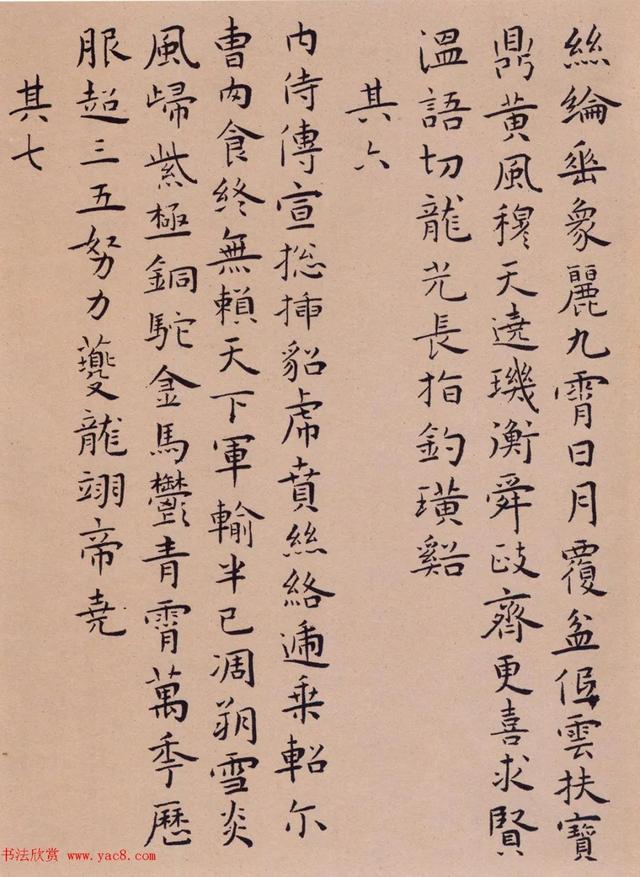 絲綸垂象麗九霄日月覆盆低雲扶寶
鼎黃風穆天遶璣衡舜政齊更喜求賢
溫語切龍光長指釣璜谿
其六
內侍傳宣総插貂虎賁絲絡遞乘軺尔
曹肉食終無賴天下軍輸半已凋朔雪炎
風歸紫極銅駝金馬鬱青霄萬季歷
服超三五努力夔龍翊帝堯
其七
书法欣赏 www.yac8.com